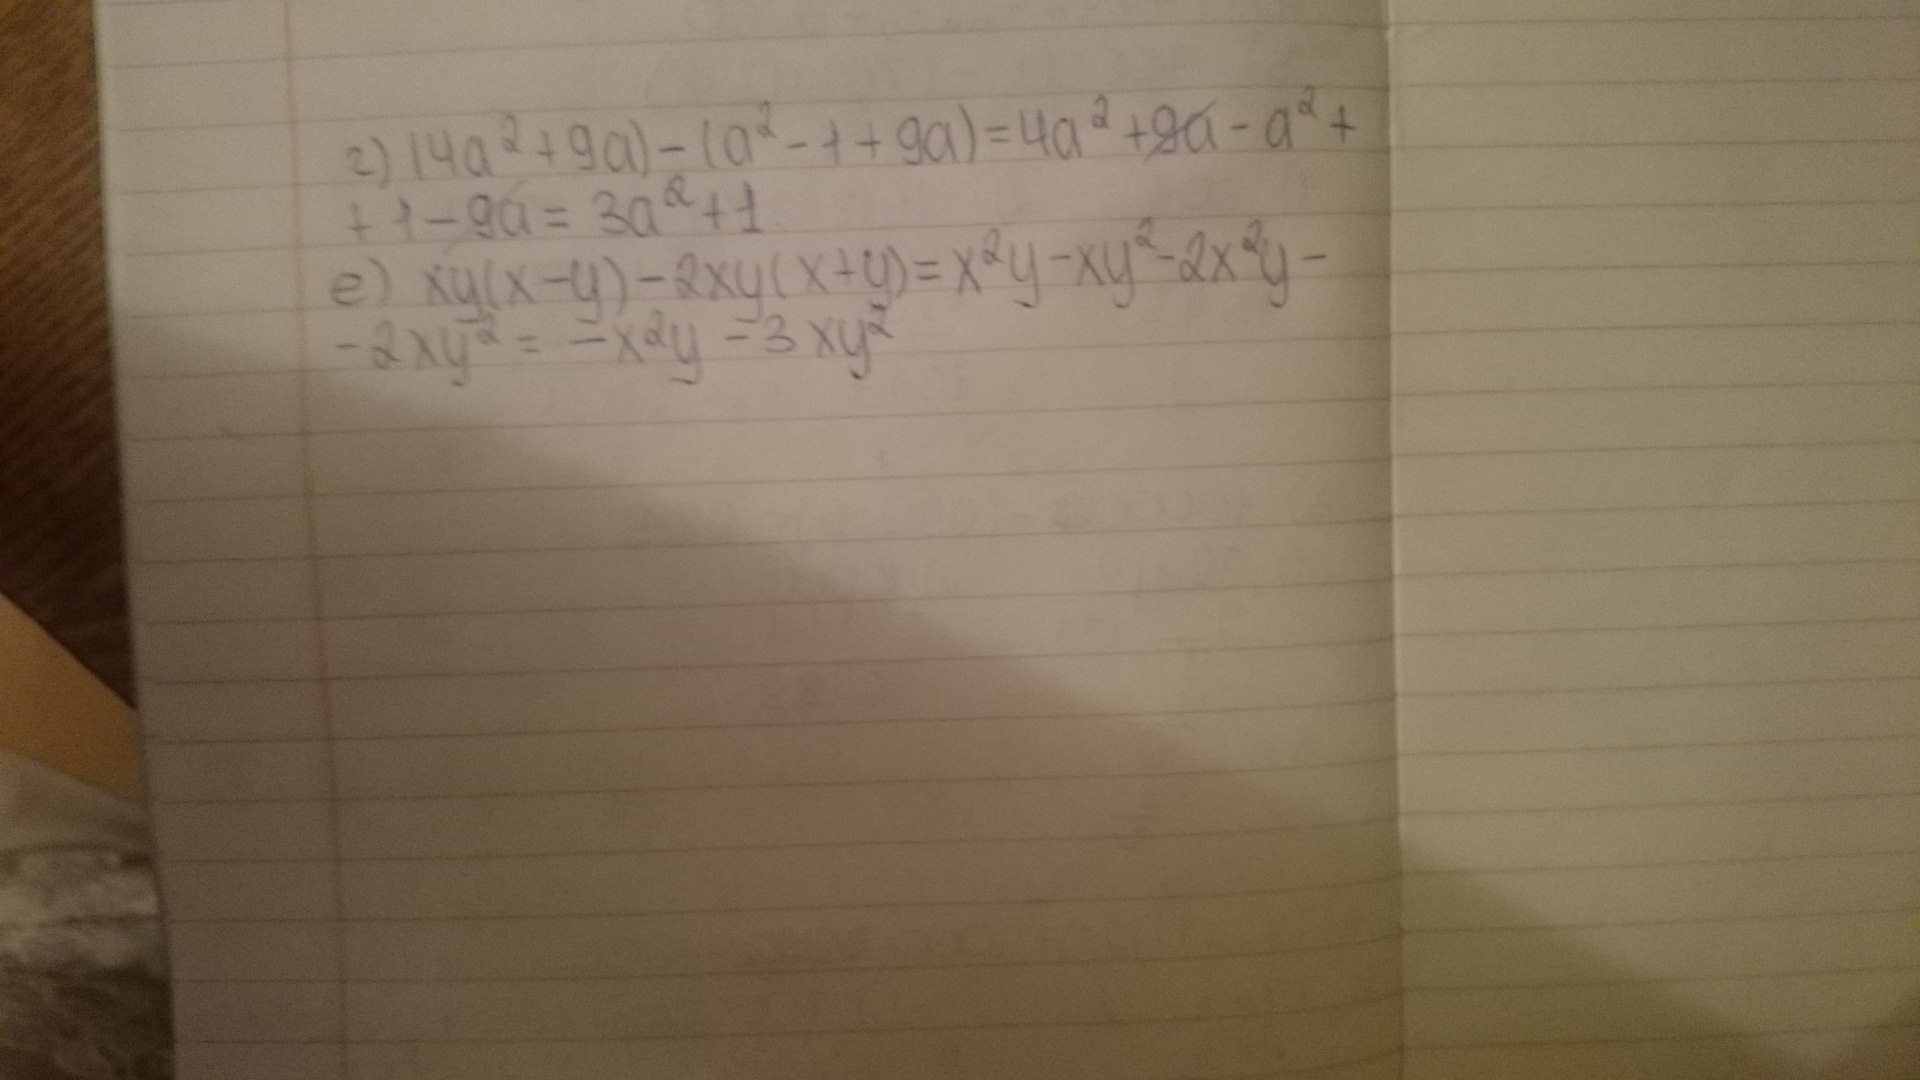 г) (4a²+9a)-(a²-1+9a)=4a²+9a-a²+
+1-9a=3a²+1
е) xy(x-y)-2xy(x+y)=x²y-xy²-2x²y-
-2xy²=-x²y-3xy²